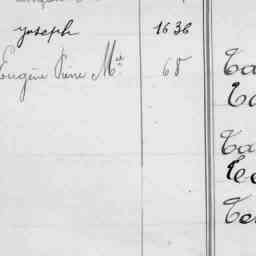 Joseph 1636
Eugène Pierre Mie 68
Ta
Ta
Ta
Te
Te